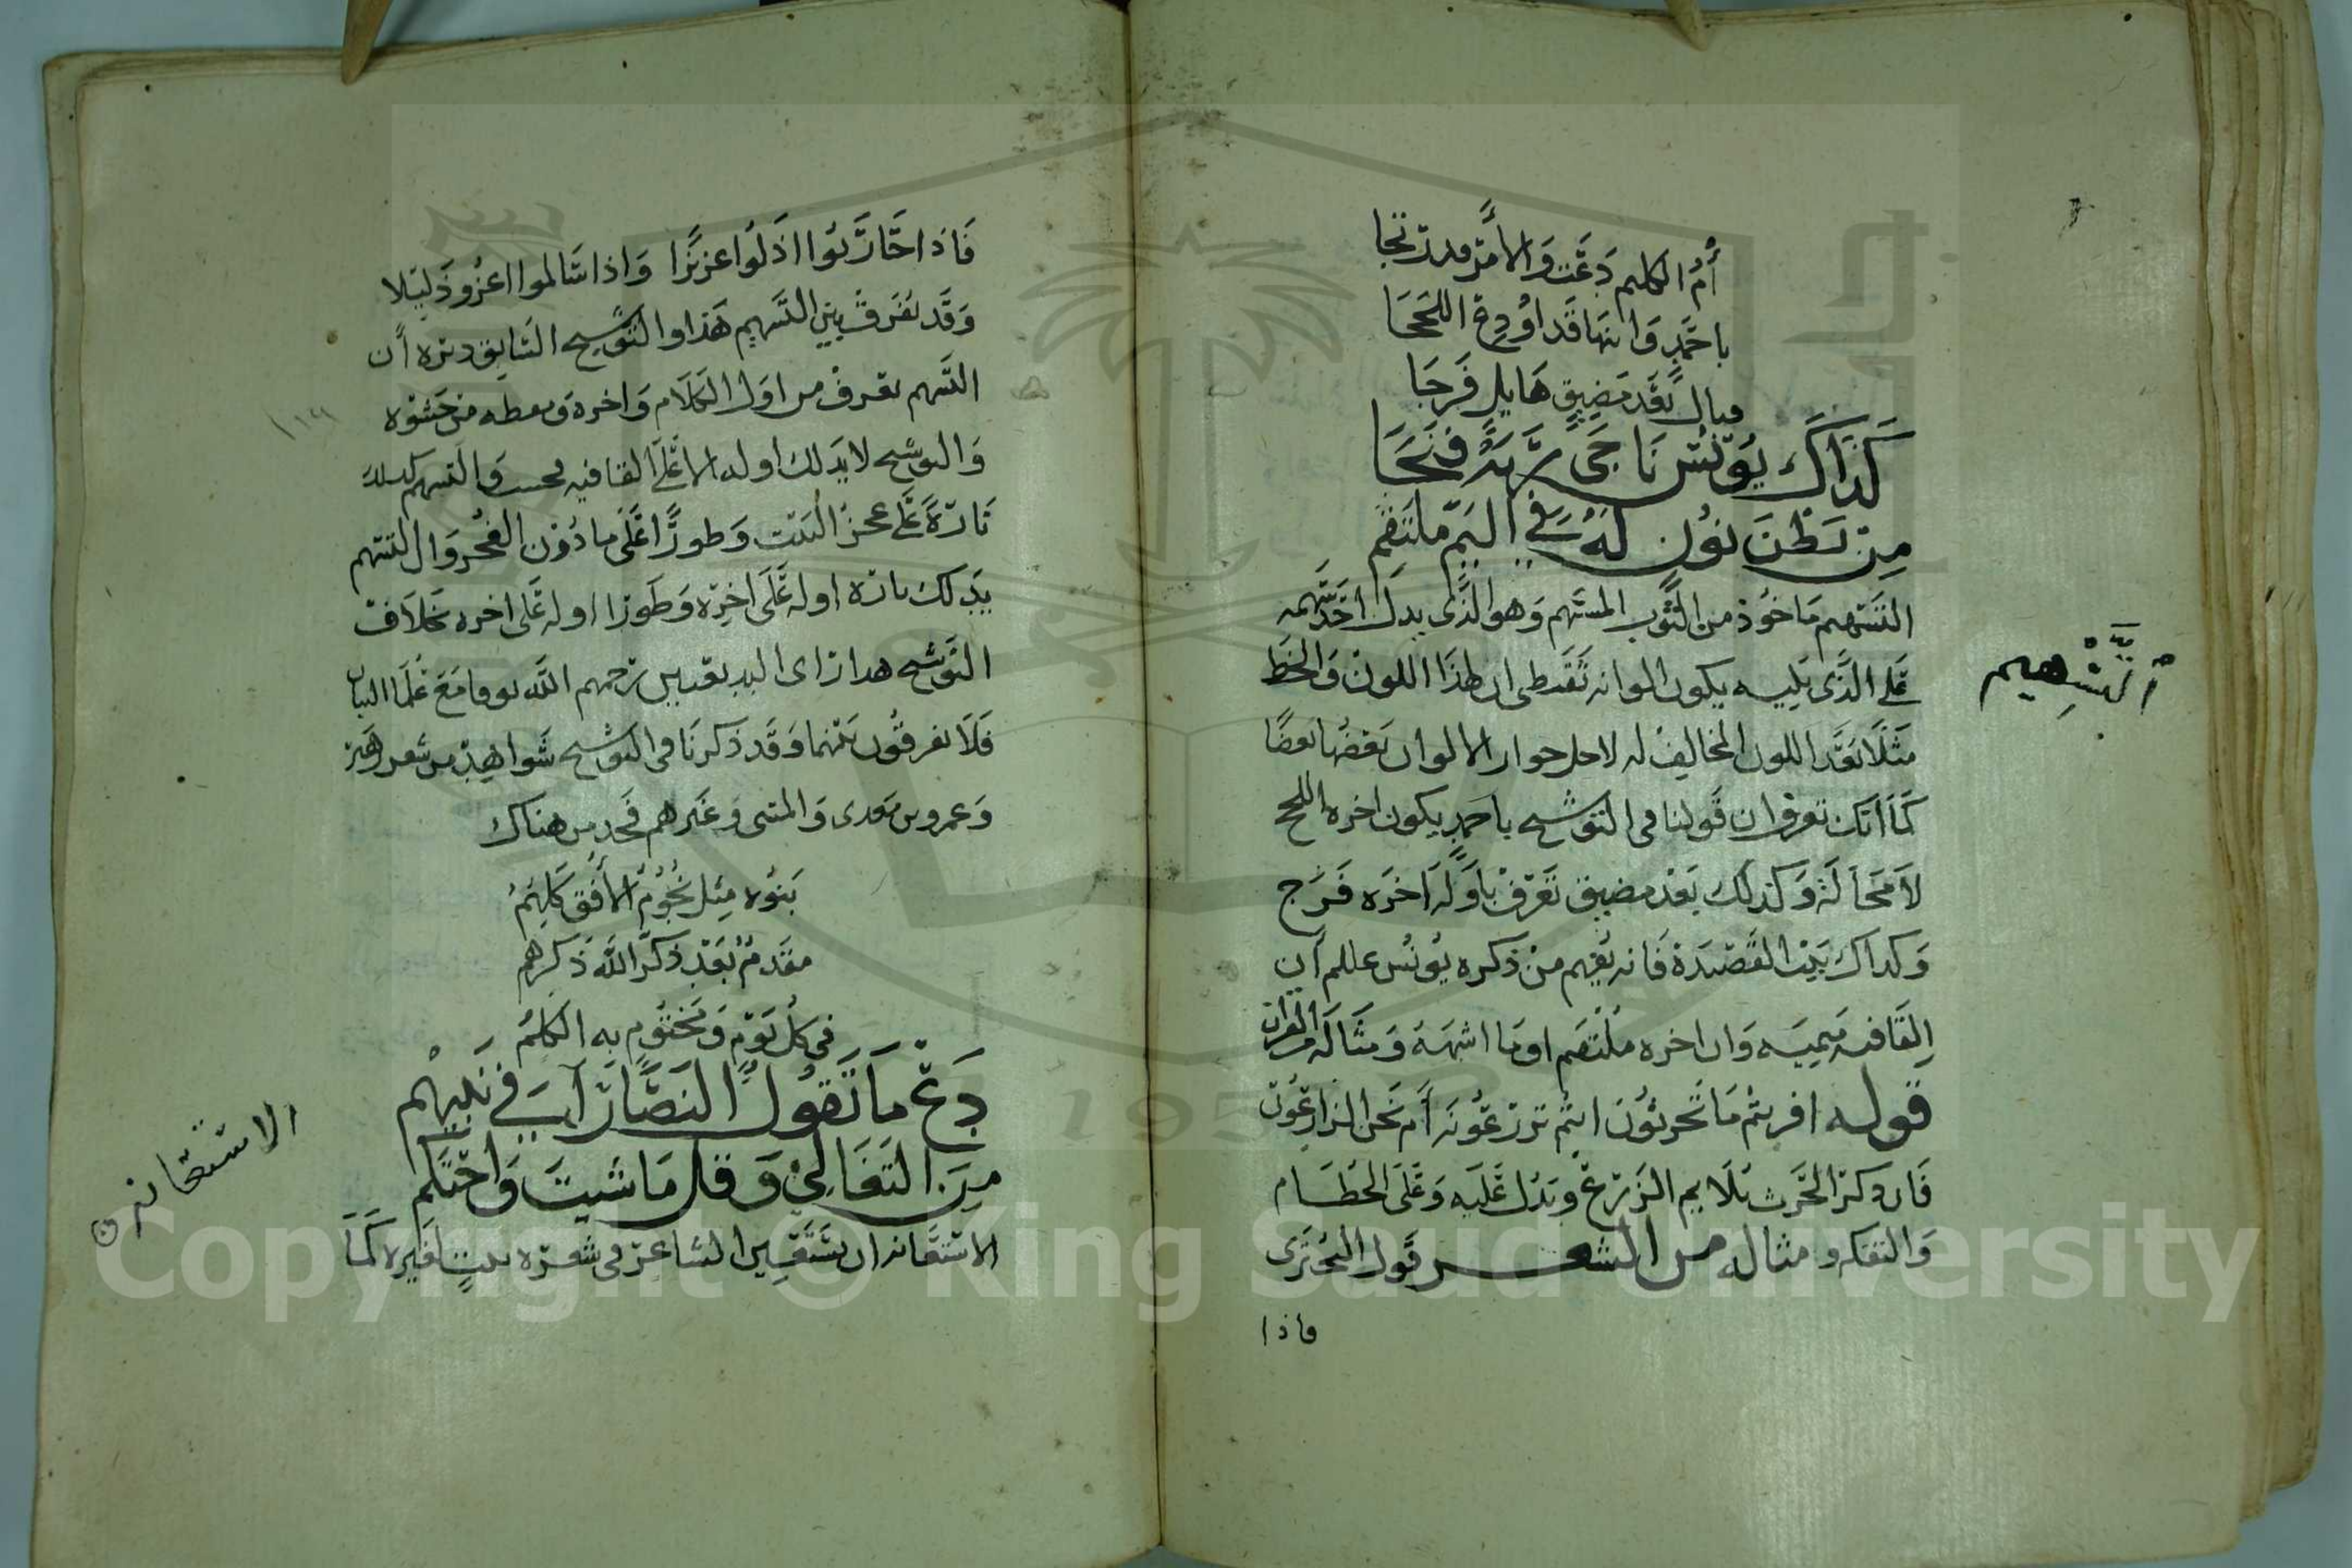 أم الكليم دعت والأمر قد رتجا
ياحمد وانها قد اودع اللححا
فيال بعد مضيق هايل فرجا
كذاك يونس ناجى ربه فنجا
من بطن نون له في اليم ملتقم
التسهيم ماخوذ من الثوب المسهم وهو الذى يدل احد سهمه
على الذى يليه يكون الوانه تقتطى ان هذا اللون والخط
مثلا بعد اللون المخالف له لاجل جوار الالوان بعضها بعضا
كما انك تعرف ان قولنا فى التوشيح ياحمد يكون اخره اللحج
لا محالة وكذلك بعد مضيق تعرف باوله اخره فرج
وكذاك بيت القصيدة فانه يفهم من ذكره يونس علم ان
القافيه ميميه وان اخره ملتقم اوما اشبهه ومثاله من القران
قوله افريتم ما تحرثون انتم تزرعونه أم نحن الزارعون
فان ذكر الحرث يلايم الزرع ويدل عليه وعلى الحطام
والتفكه ومثاله من الشعر قول البحترى
فاذا
التسهيم
فاذا حاربوا اذلوا عزيزا واذا سالموا اعزو ذليلا
وقد يفرق بين التسهيم هذا والتوشيح السابق ذكره أن
التسهم يعرف من اول الكلام واخره ويعطه من حشوه
والتوشيح لا يدلك اوله الا على القافيه فحسب والتسهيم يدلك
تارة على عجز البيت وطورا على ما دون العجز وال التسهم
يدلك تارة اوله على اخره وطورا اوله على اخره بخلاف
التوشيح هذا راى البديعيين رحمهم الله توفا مع علما البيان
فلا يفرقون بينهما وقد ذكرنا فى التوشيح شواهد من شعر زهير
وعمروبن معدى والمتنبى وغيرهم فخد من هناك
بنوه مثل نجوم الأفق كلهم
مقدم بعد ذكر الله ذكرهم
في كل يوم ومختوم به الكلم
دع ما تقول النصارى في نبيهم
من التغالي وقل ما شيت واحتكم
الاستعانه ان يستعين الشاعر فى شعره ببيت لغيره كما
الاستعانه